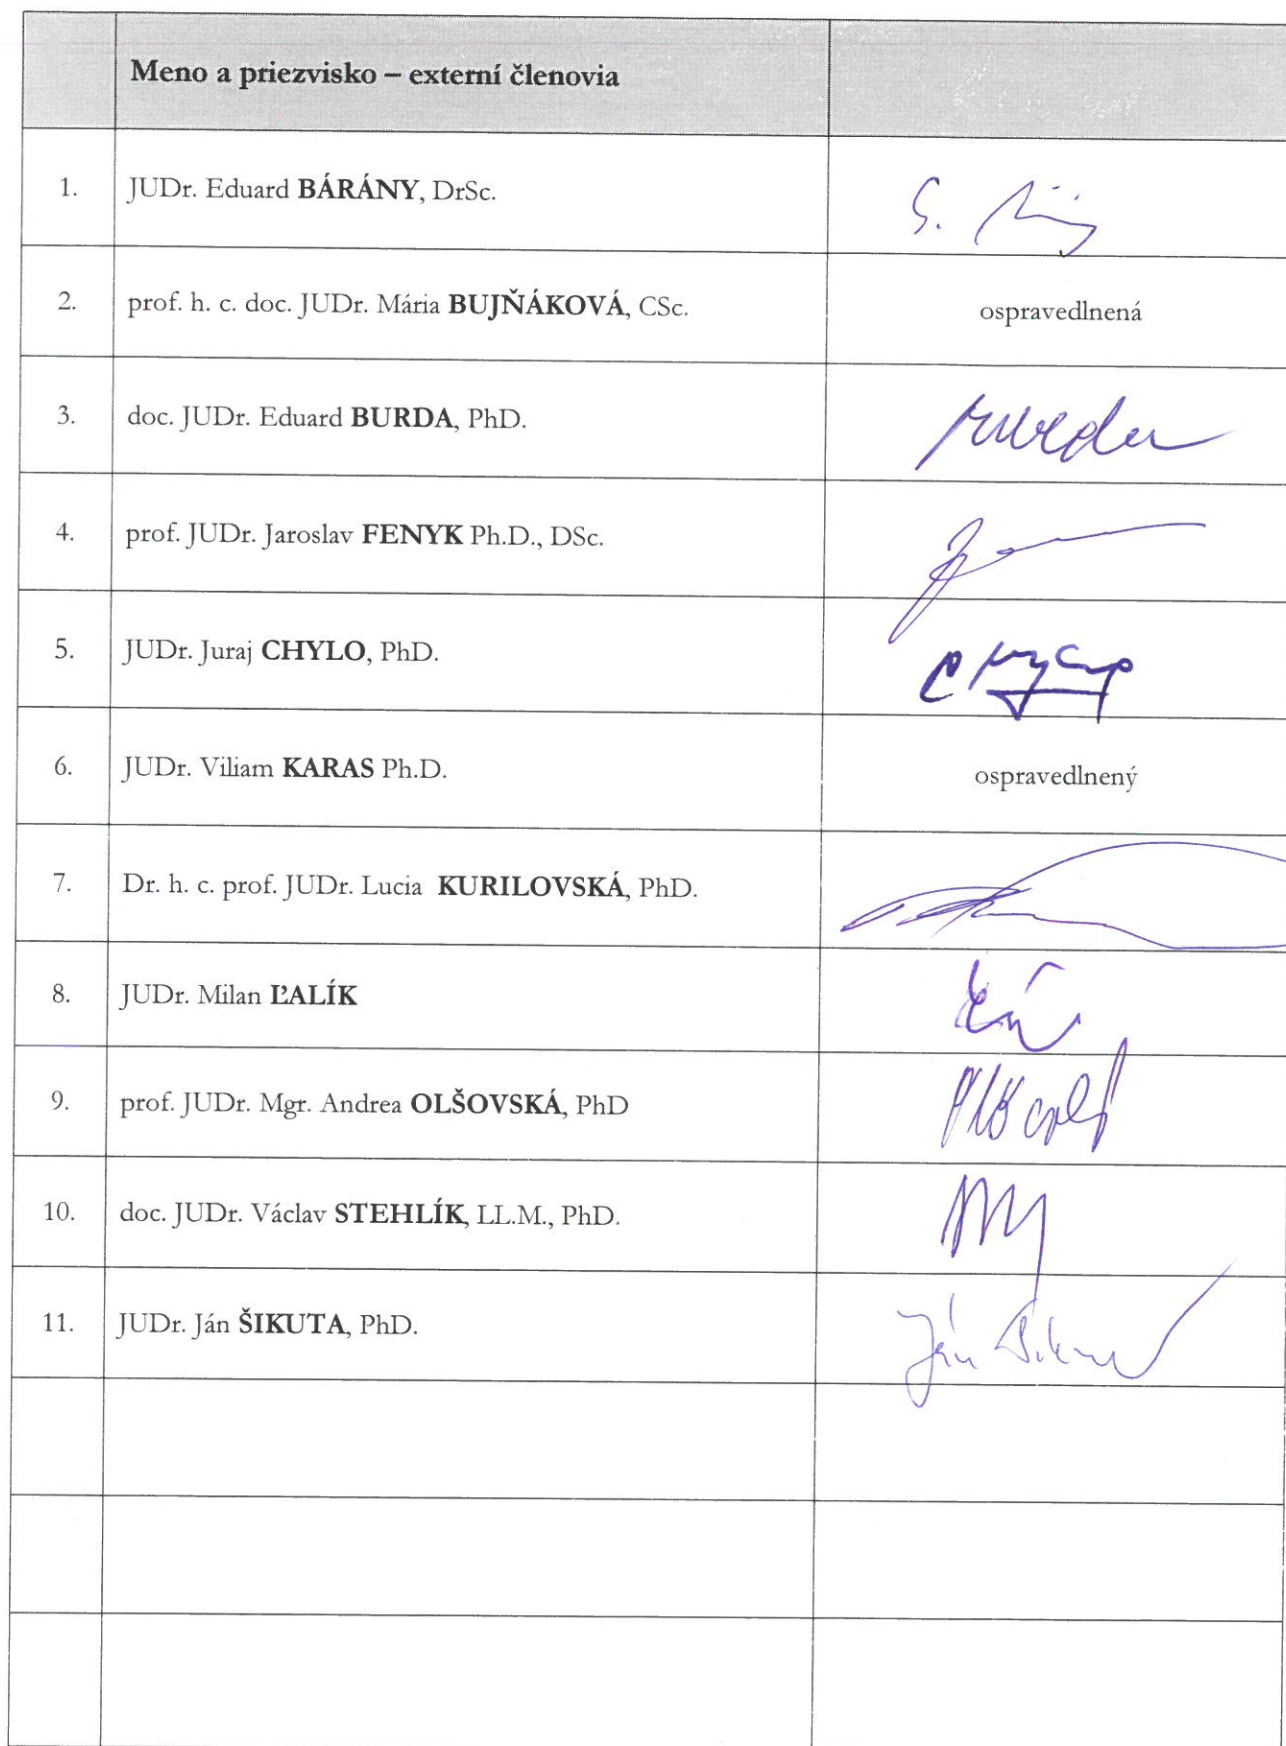 Meno a priezvisko – externí členovia
1. JUDr. Eduard BÁRÁNY, DrSc.
2. prof. h. c. doc. JUDr. Mária BUJŇÁKOVÁ, CSc. ospravedlnená
3. doc. JUDr. Eduard BURDA, PhD.
4. prof. JUDr. Jaroslav FENYK Ph.D., DSc.
5. JUDr. Juraj CHYLO, PhD.
6. JUDr. Viliam KARAS Ph.D. ospravedlnený
7. Dr. h. c. prof. JUDr. Lucia KURILOVSKÁ, PhD.
8. JUDr. Milan ĽALÍK
9. prof. JUDr. Mgr. Andrea OLŠOVSKÁ, PhD
10. doc. JUDr. Václav STEHLÍK, LL.M., PhD.
11. JUDr. Ján ŠIKUTA, PhD. Ján